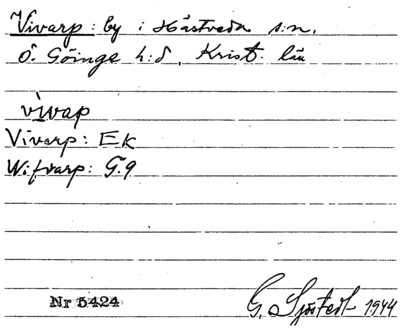 Vivarp: by i Hästveda s:n.
Ö. Göinge h:d, Krist. län
vivap
Vivarp: EK
Wifvarp: G.9
Nr 5424
G. Sjöstedt 1944